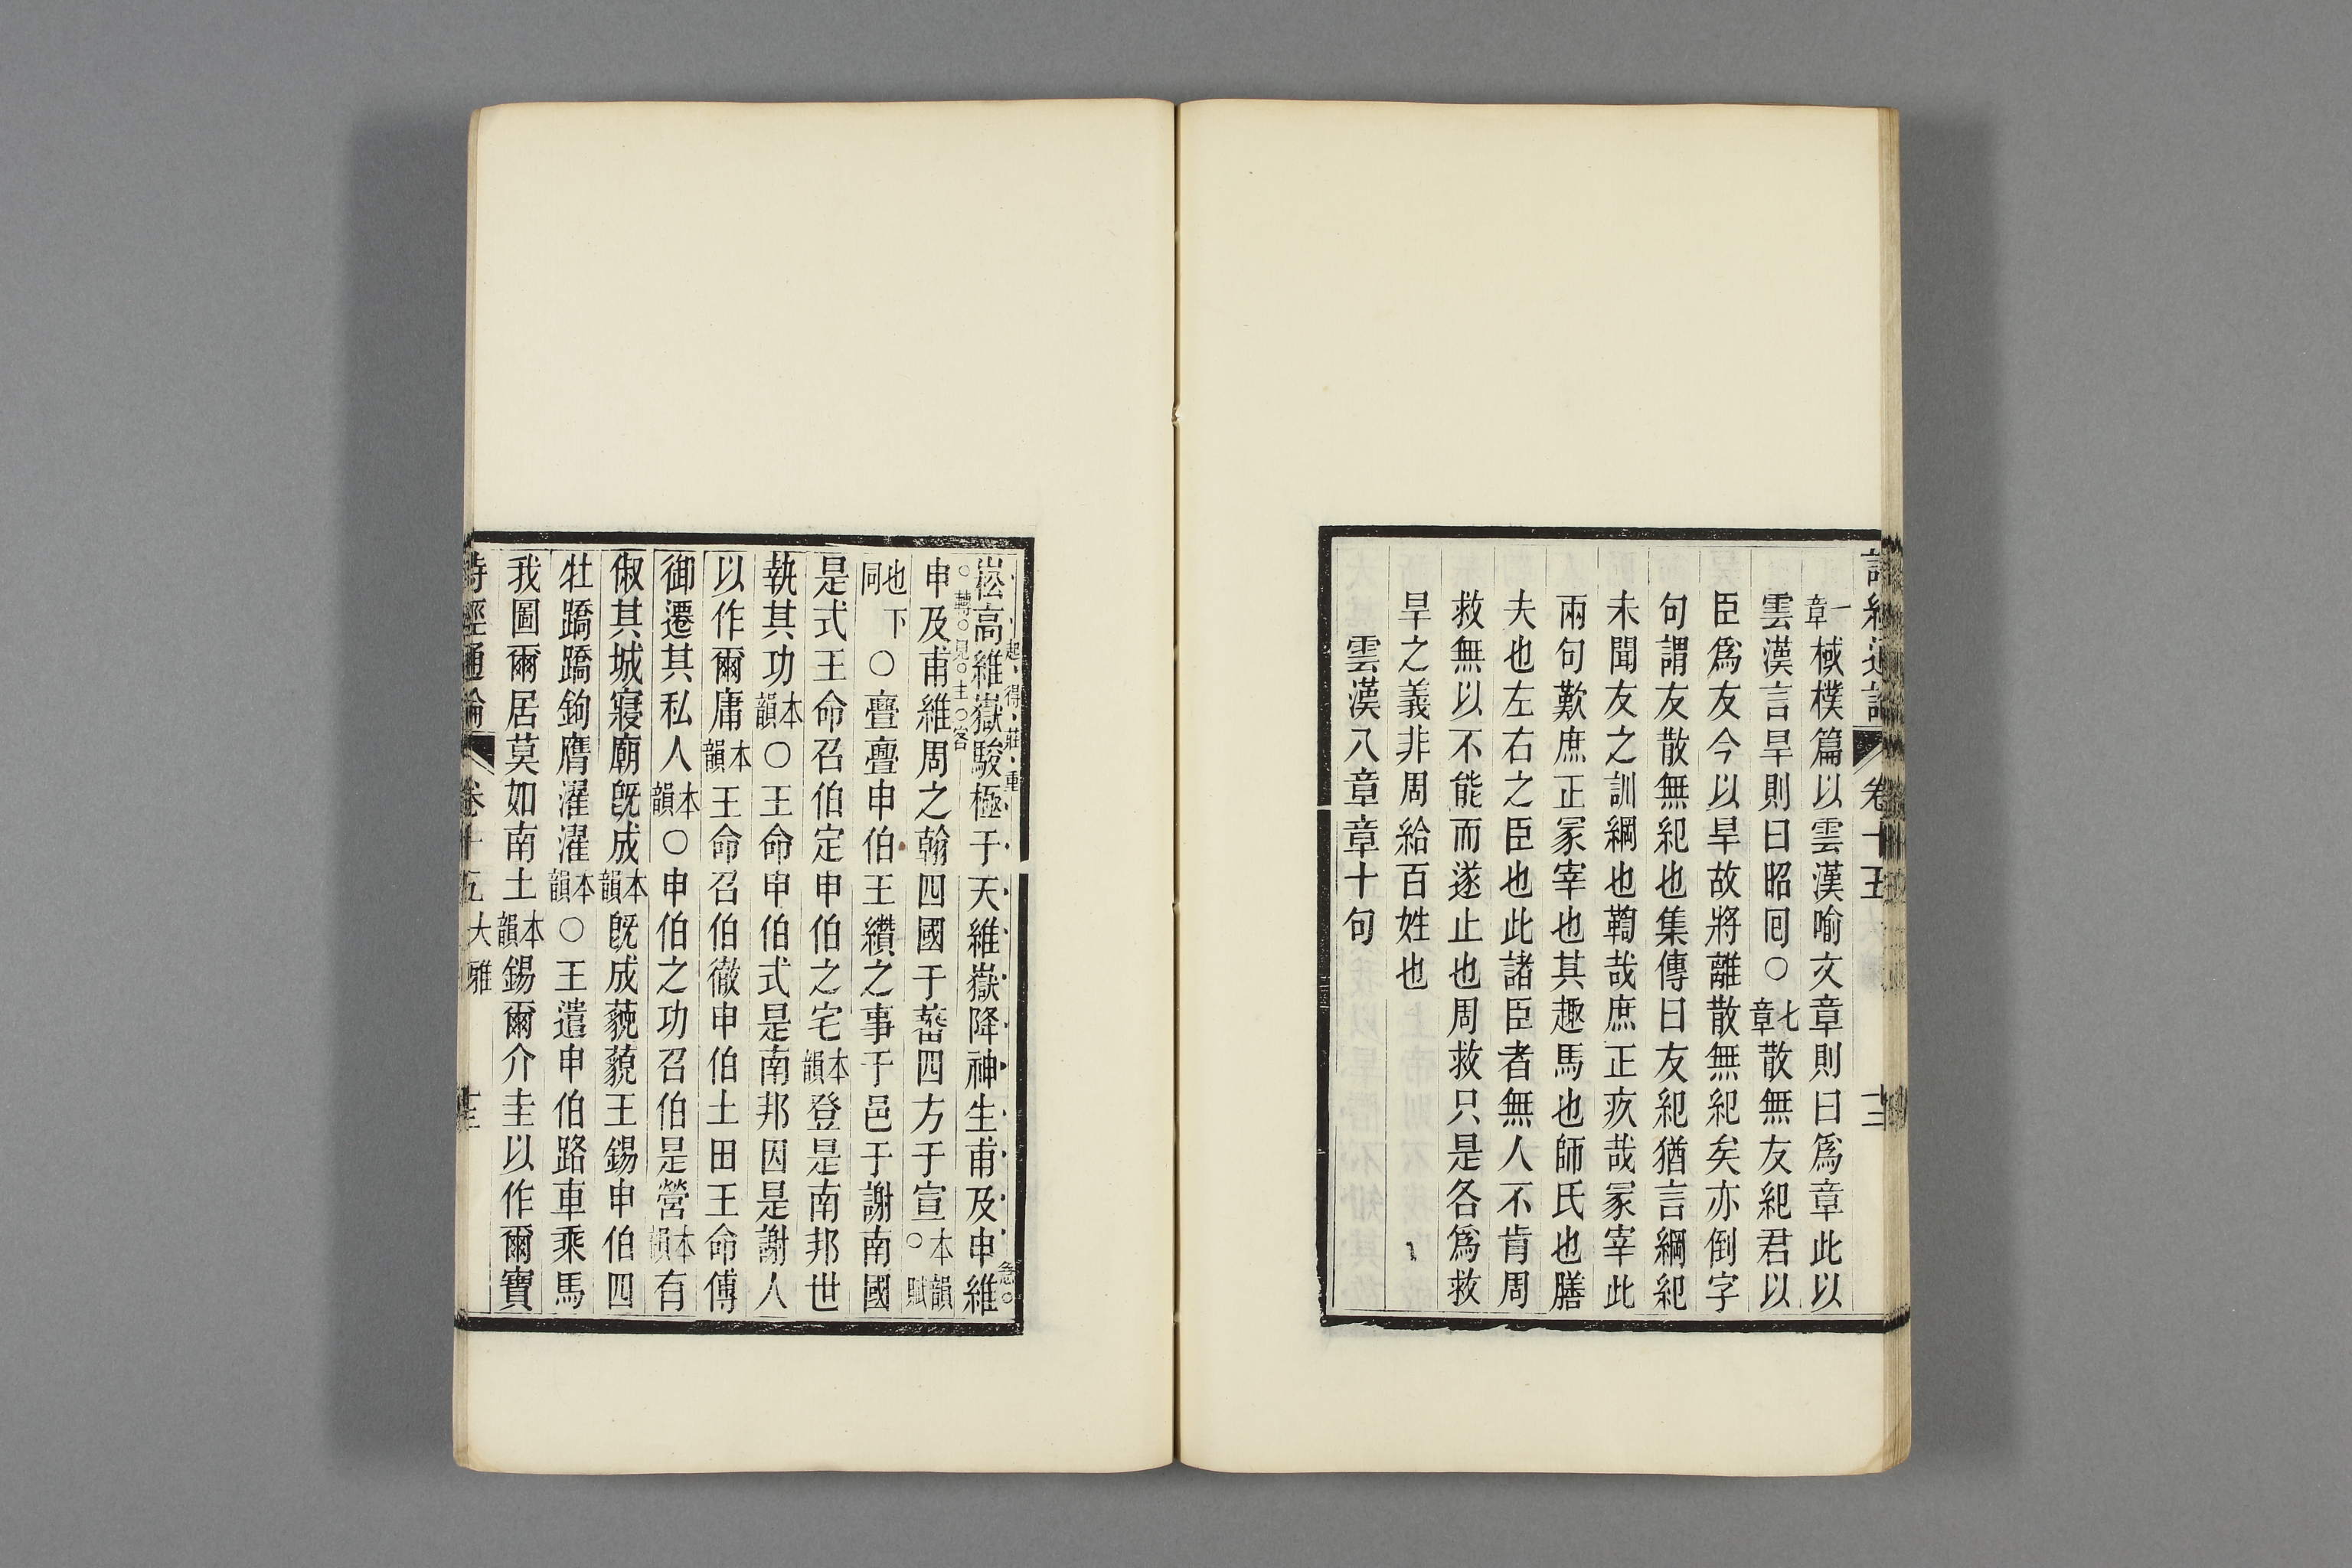 詩經通論 卷十五 十二
一章 棫樸篇以雲漢喻文章則曰爲章此以
雲漢言旱則曰昭回〇七章散無友紀君以
臣爲友今以旱故將離散無紀矣亦倒字
句謂友散無紀也集傳曰友紀猶言綱紀
未聞友之訓綱也鞫哉庶正疚哉冢宰此
兩句歎庶正冢宰也其趣馬也師氏也膳
夫也左右之臣也此諸臣者無人不肯周
救無以不能而遂止也周救只是各爲救
旱之義非周給百姓也
雲漢八章章十句
起得莊重 急
崧高維嶽駿極于天維嶽降神生甫及申維
轉見主客
申及甫維周之翰四國于蕃四方于宣本韻〇賦
也下同〇亹亹申伯王纘之事于邑于謝南國
是式王命召伯定申伯之宅本韻登是南邦世
執其功本韻〇王命申伯式是南邦因是謝人
以作爾庸本韻王命召伯徹申伯土田王命傅
御遷其私人本韻〇申伯之功召伯是營本韻有
俶其城寢廟旣成本韻旣成藐藐王錫申伯四
牡蹻蹻鉤膺濯濯本韻〇王遣申伯路車乘馬
我圖爾居莫如南土本韻錫爾介圭以作爾寶
詩經通論 卷十五 大雅 十三